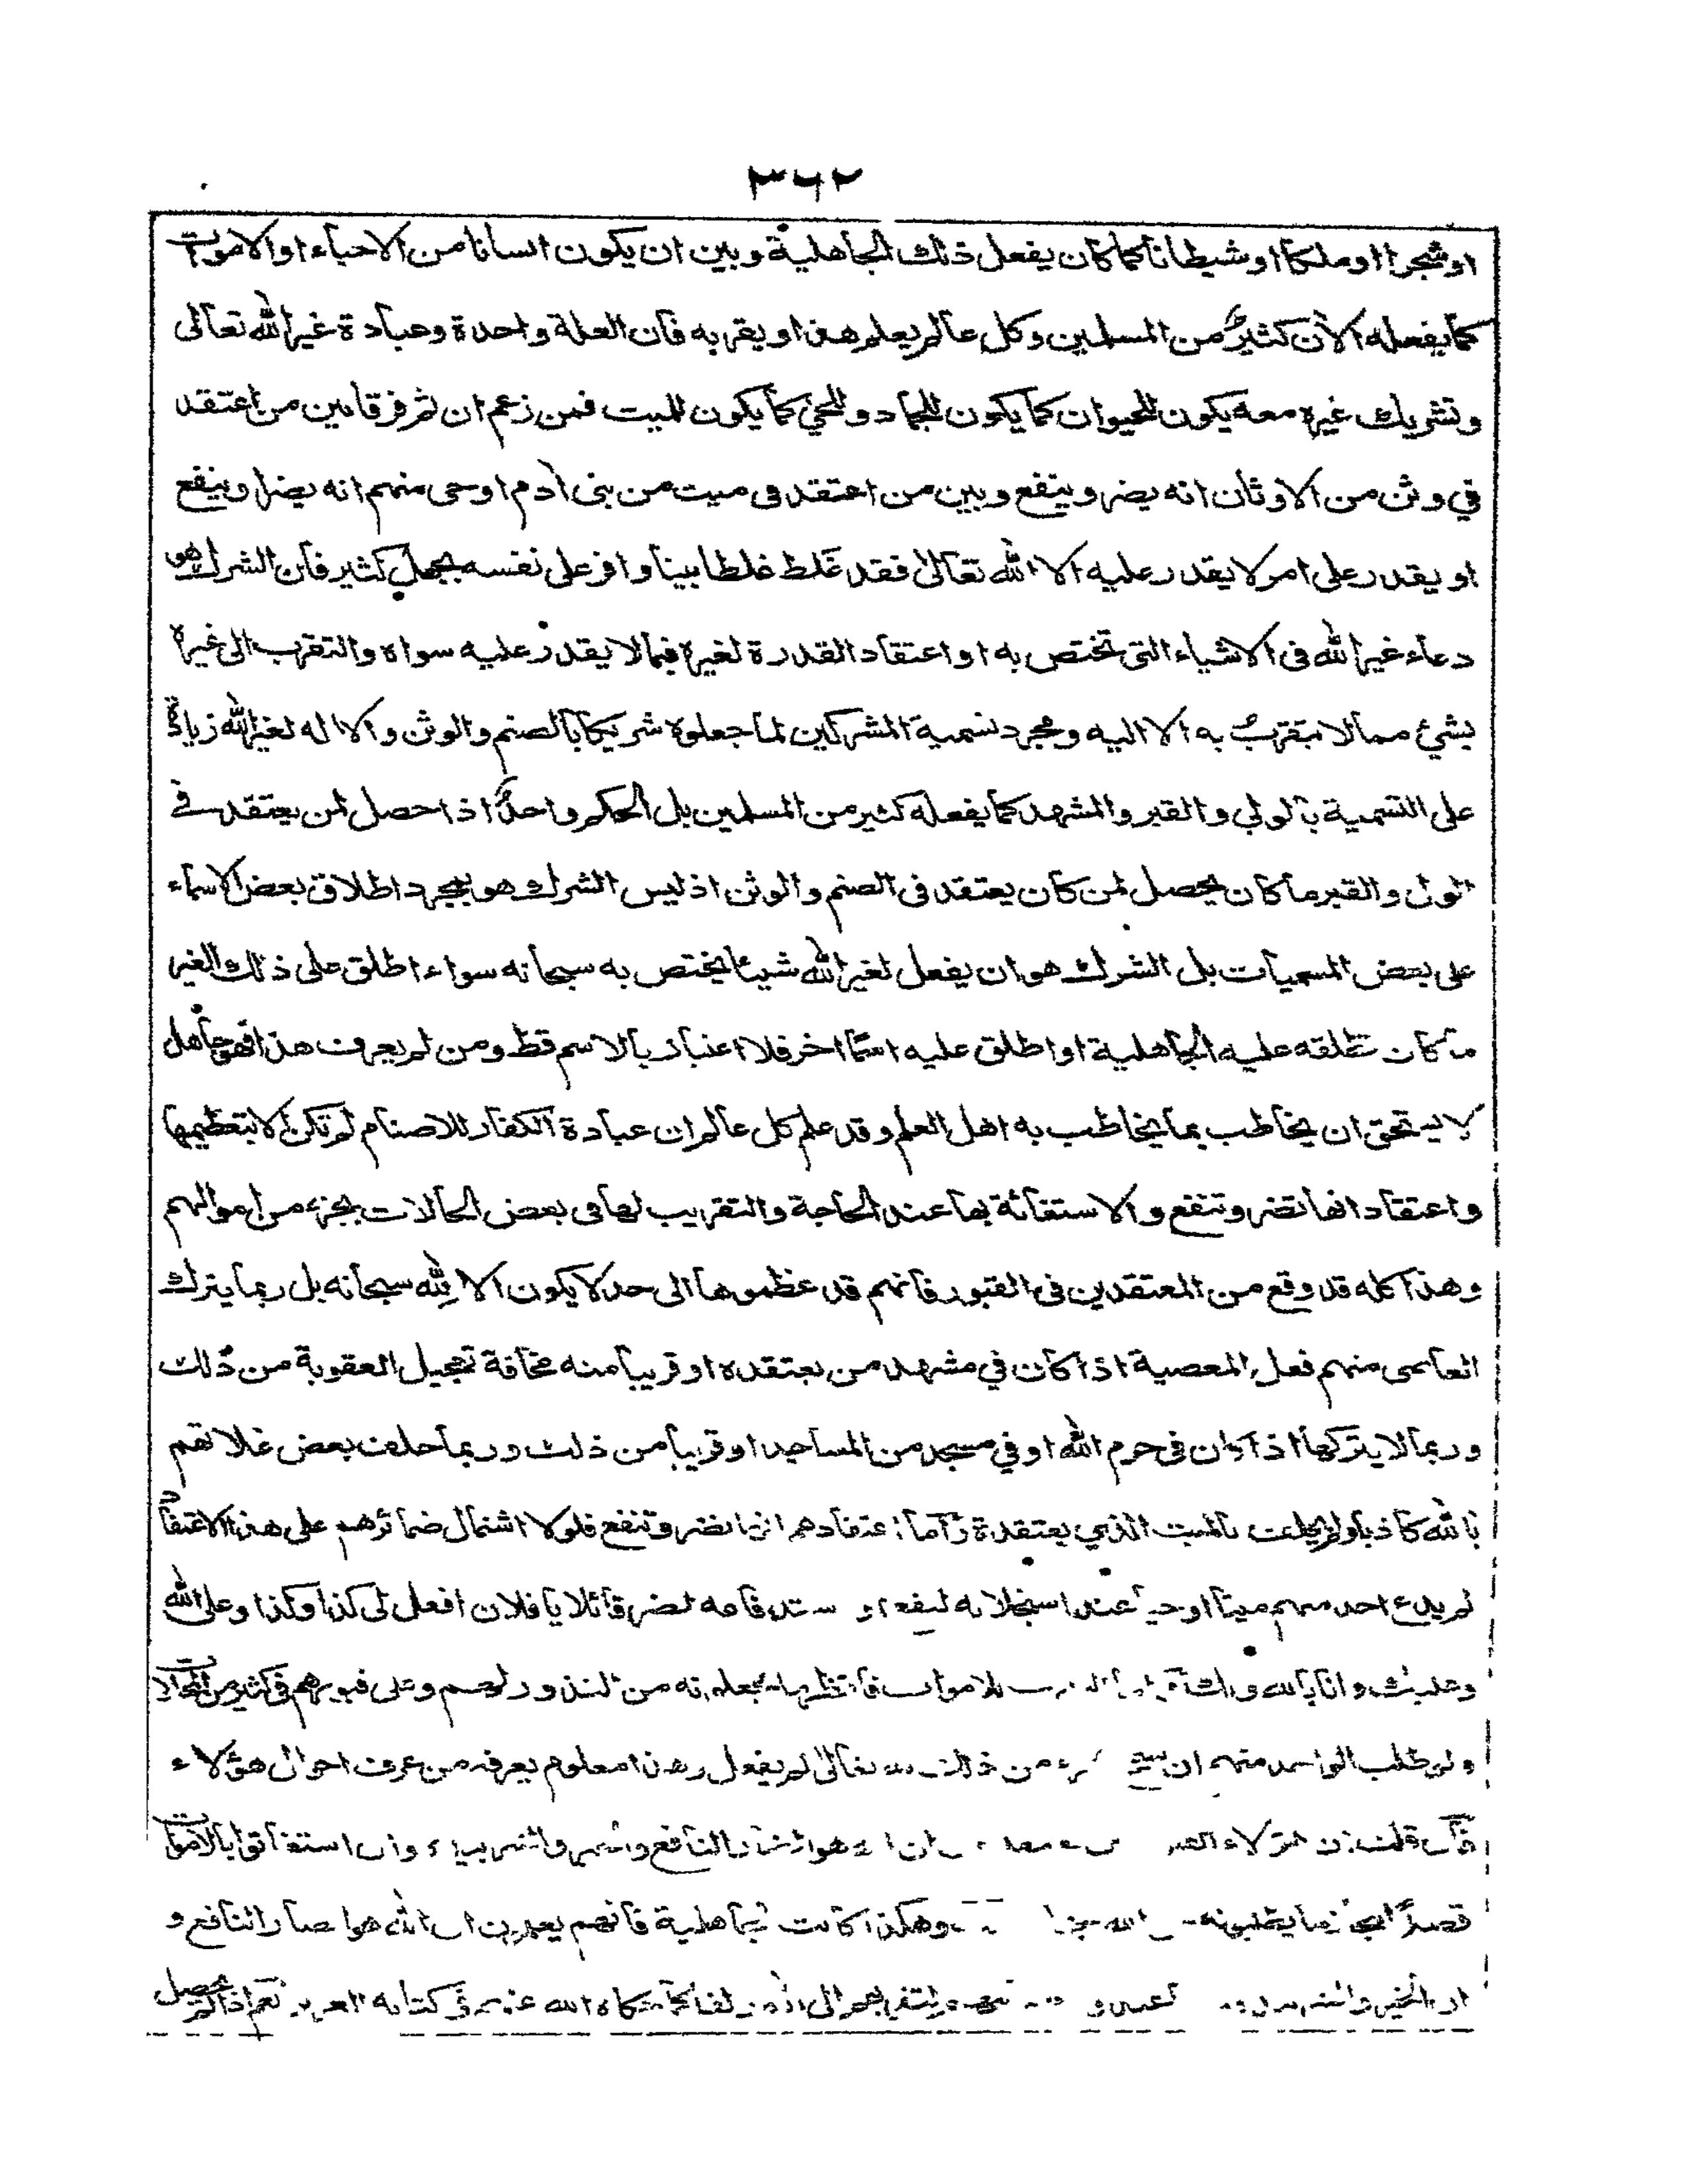 ٣٦٢
او شجرا او ملكا او شيطانا كما كان يفعل ذلك الجاهلية وبين ان يكون انسانا من الاحياء او الاموات
كما يفعله الآن كثير من المسلمين وكل عالم يعلم هذا ويقر به فان العلة واحدة وعبادة غير الله تعالى
وتشريك غيره معه يكون للحيوان كما يكون للجماد وللحي كما يكون للميت فمن زعم ان ثم فرقا بين من اعتقد
في وثن من الاوثان انه يضر وينفع وبين من اعتقد في ميت من بنى آدم او حى منهم انه يضر او ينفع
او يقدر على امر لا يقدر عليه الا الله تعالى فقد غلط غلطا بينا واقر على نفسه بجهل كثير فان الشرك هو
دعاء غير الله فى الاشياء التى تختص به او اعتقاد القدرة لغيره فيما لا يقدر عليه سواه والتقرب الى غيره
بشئ مما لا يتقرب به الا اليه ومجرد تسمية المشركين لما جعلوه شريكا بالصنم والوثن والاله لغير الله زيادة
على التسمية بالولي والقبر والمشهد كما يفعله كثير من المسلمين بل الحكم واحد اذا حصل لمن يعتقد في
الولى والقبر ما كان يحصل لمن كان يعتقد فى الصنم والوثن اذ ليس الشرك هو بمجرد اطلاق بعض الاسماء
على بعض المسميات بل الشرك هو ان يفعل لغير الله شيئا يختص به سبحانه سواء اطلق على ذلك الغير
ما كان تطلقه عليه الجاهلية او اطلق عليه اسما اخر فلا اعتبار بالاسم قط ومن لم يعرف هذا فهو جاهل
لا يستحق ان يخاطب بما يخاطب به اهل العلم وقد علم كل عالم ان عبادة الكفار للاصنام لم تكن الا بتعظيمها
واعتقاد انها تضر وتنفع والاستغاثة بها عند الحاجة والتقريب لها فى بعض الحالات بجزء من اموالهم
وهذا كله قد وقع من المعتقدين فى القبور فانهم قد عظموها الى حد لا يكون الا لله سبحانه بل ربما يترك
العاصى منهم فعل المعصية اذا كان في مشهد من يعتقده او قريبا منه مخافة تعجيل العقوبة من ذلك
وربما لا يتركها اذا كان فى حرم الله او في مسجد من المساجد او قريبا من ذلك وربما حلف بعض غلاتهم
بالله كاذبا ولم يحلف بالميت الذي يعتقده واما اعتقادهم انها تضر وتنفع فلولا اشتمال ضمائرهم على هذا الاعتقاد
لم يدع احد منهم ميتا او حيا عند استجلابه لنفع او استدفاعه لضر قائلا يا فلان افعل لى كذا وكذا وعلى الله
وعليك وانا بالله وبك للاموات فانظر ما يجعلونه من النذور لهم وعلى قبورهم فى كثير من المحلات
ولو طلب الواحد منهم ان من ذلك لله تعالى لم يفعل وهذا معلوم يعرفه من عرف احوال هؤلاء
فان قلت ان هؤلاء ان الله هو الضار النافع والخير والشر بيده وان استغاثوا بالاموات
قصدوا انجاز ما يطلبونه من الله وهكذا كانت الجاهلية فانهم يعلمون ان الله هو الضار النافع و
ان الخير والشر ليقربوهم الى الله زلفى كما حكاه الله عنهم فى كتابه العزيز نعم اذا لم يحصل